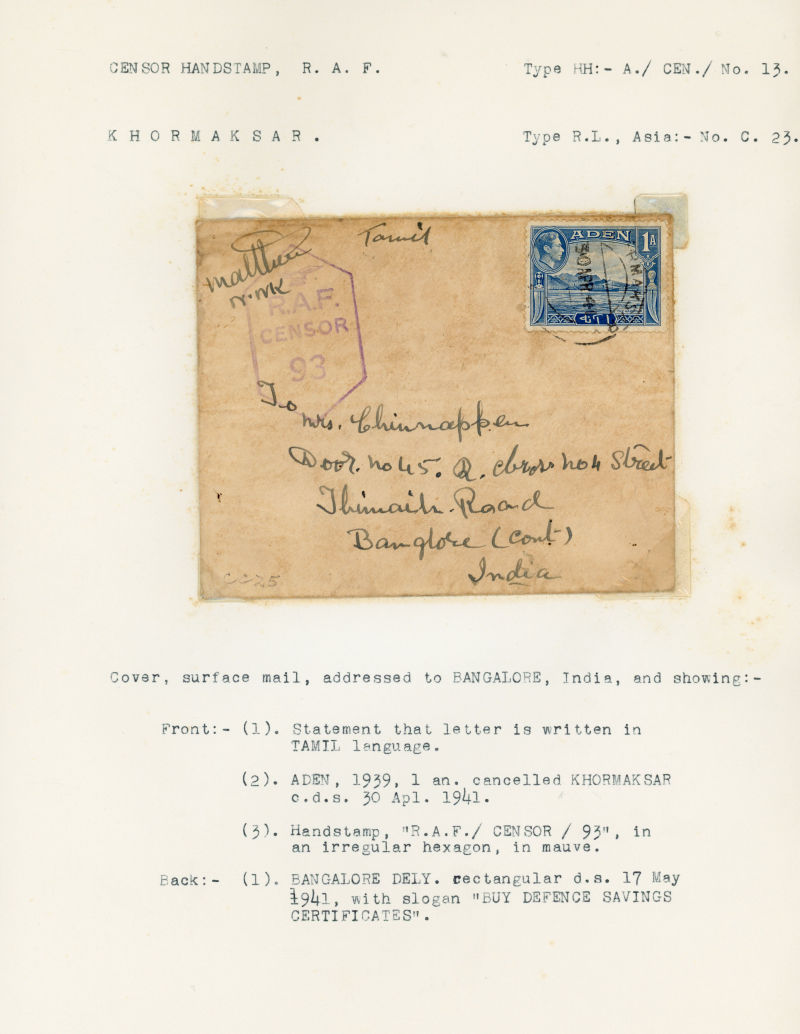 CENSOR HANDSTAMP, R. A. F.
Type HH:- A./ CEN./ No. 13.
K H O R M A K S A R .
Type R.L., Asia:- No. C. 23.
Matthew
Tamil
R.A.F.
CENSOR
93
ADEN 1A
RMAKS
30 APR 4
To
Mrs. Chinnappen
Door. no 45. R. cross no 4 Street
Thimaih. Roard
Banglore (Cont)
India
CC25
Cover, surface mail, addressed to BANGALORE, India, and showing:-
Front:- (1). Statement that letter is written in
TAMIL language.
(2). ADEN, 1939, 1 an. cancelled KHORMAKSAR
c.d.s. 30 Apl. 1941.
(3). Handstamp, "R.A.F./ CENSOR / 93", in
an irregular hexagon, in mauve.
Back:- (1). BANGALORE DELY. rectangular d.s. 17 May
1941, with slogan "BUY DEFENCE SAVINGS
CERTIFICATES".